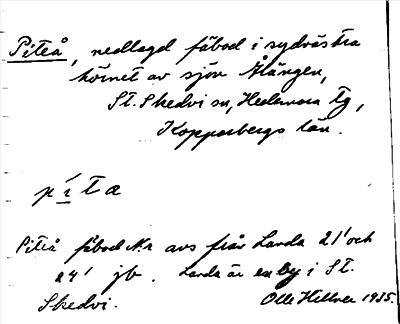 Piteå, nedlagd fäbod i sydvästra
hörnet av sjön Hången,
St. Skedvi sn, Hedemora tg,
Kopparbergs län.
píta
Piteå fäbod Nr avs från Landa 21' och
24' jb. Landa är en by i St.
Skedvi.
Olle Hellner 1935.